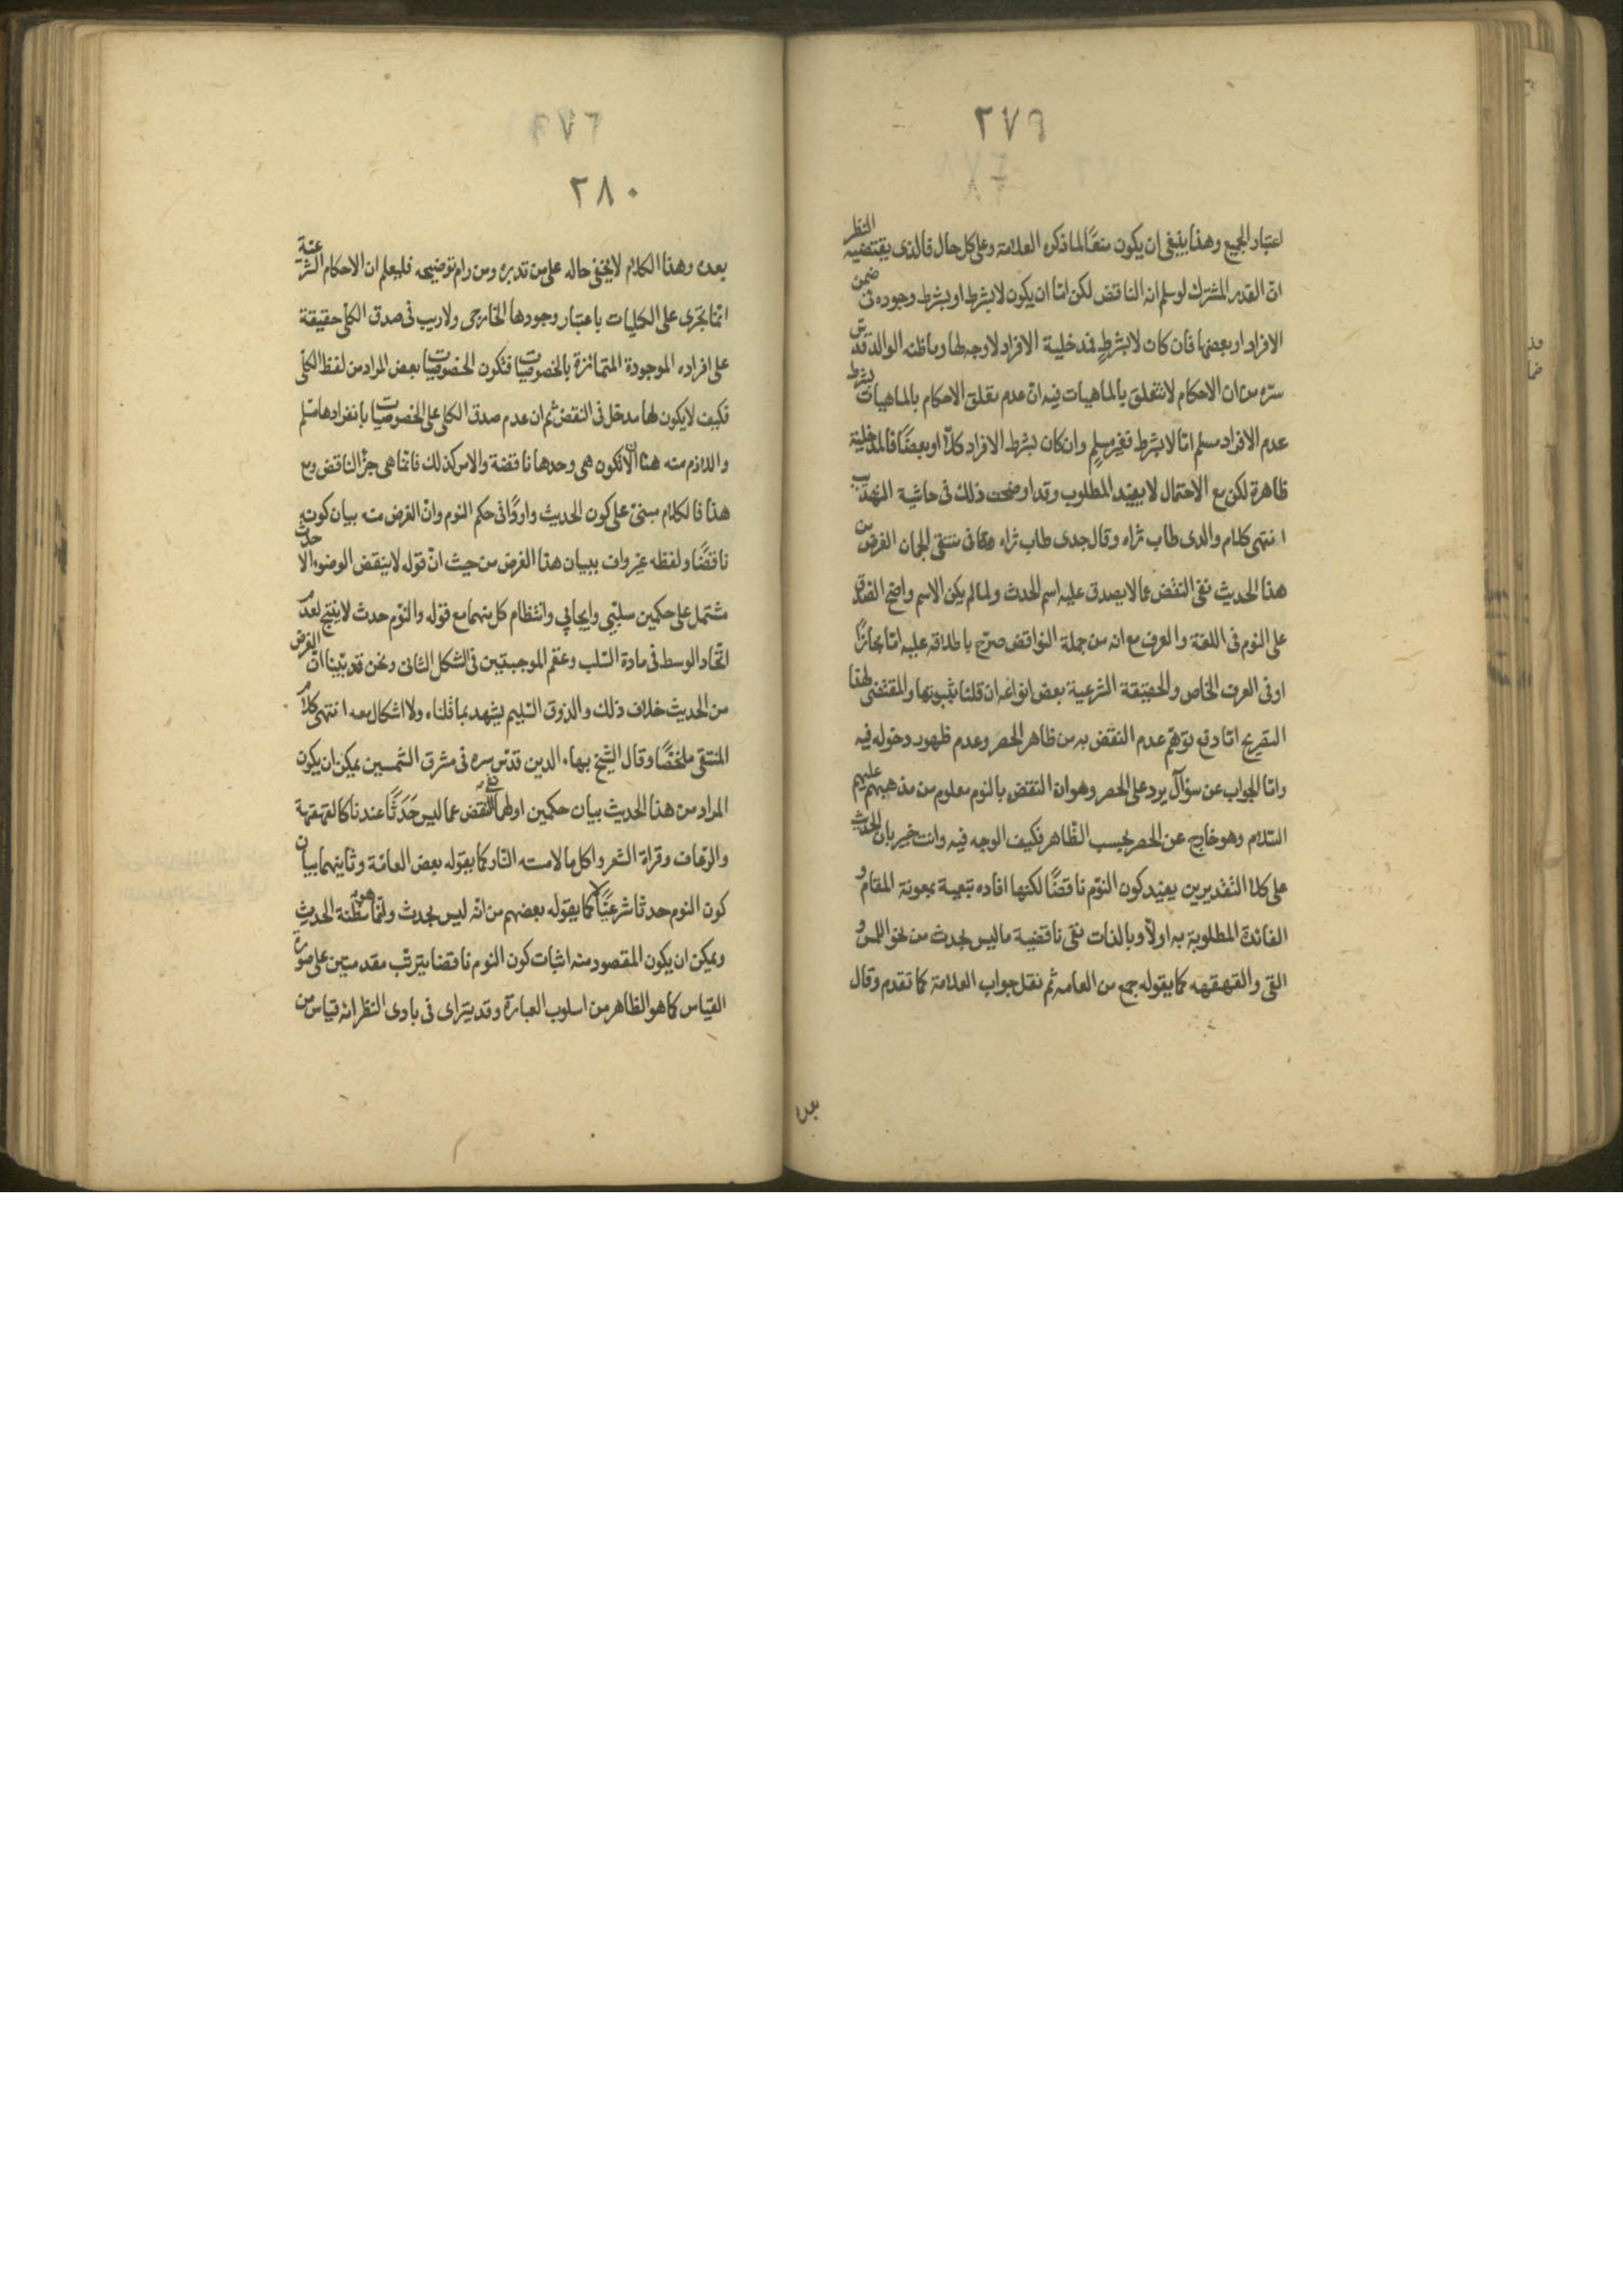 ٢٧٩
اعتبار الجميع وهذا ينبغى ان يكون منعًا لما ذكره العلامة وعلى كل حال فالذى يقتضيه النظر
ان القدر المشترك لو سلم انه الناقض لكن اما ان يكون لا بشرط او بشرط وجوده فى ضمن
الافراد او بعضها فان كان لا بشرط فمدخلية الافراد لا وجه لها وما ظنه الوالد قدس
سره من ان الاحكام لا تتعلق بالماهيات فيه ان عدم تعلق الاحكام بالماهيات بشرط
عدم الافراد مسلم اما لا بشرط فغير مسلم وان كان بشرط الافراد كلاً او بعضًا فالمدخلية
ظاهرة لكن مع الاحتمال لا يفيد المطلوب وقد اوضحت ذلك فى حاشية التهذيب
انتهى كلام والدى طاب ثراه وقال جدى طاب ثراه فى منتقى الجمان الغرض من
هذا الحديث نفى النقض عما لا يصدق عليه اسم الحدث ولما لم يكن الاسم واضح الصدق
على النوم فى اللغة والعرف مع انه من جملة النواقض صرح باطلاقه عليه اما مجازًا
او فى العرف الخاص والحقيقة الشرعية بعض انواعه ان قلنا بثبوتها والمقتضى لهذا
التصريح اما دفع توهم عدم النقض به من ظاهر الحصر وعدم ظهور دخوله فيه
واما الجواب عن سؤال يرد على الحصر وهو ان النقض بالنوم معلوم من مذهبهم عليهم
السلام وهو خارج عن الحصر بحسب الظاهر فكيف الوجه فيه وانت خبير بان الحديث
على كلا التقديرين يفيد كون النوم ناقضًا لكنها افاده تبعية بمعونة المقام و
الفائدة المطلوبة به اولاً وبالذات نفى ناقضية ما ليس بحدث من نحو اللمس و
القى والقهقهه كما يقوله جمع من العامه ثم نقل جواب العلامة كما تقدم وقال
بعده
٢٨٠
بعده وهذا الكلام لا يخفى حاله على من تدبره ومن رام توضيحه فليعلم ان الاحكام الشرعية
انما تجرى على الكليات باعتبار وجودها الخارجى ولا ريب فى صدق الكلى حقيقة
على افراده الموجودة المتمائزة بالخصوصيات فتكون الخصوصيات بعض المراد من لفظ الكلى
فكيف لا يكون لها مدخل فى النقض ثم ان عدم صدق الكلى على الخصوصيات بانفرادها مسلم
واللازم منه هنا ان لا تكون هى وحدها ناقضة والامر كذلك فانما هى جزء الناقض ومع
هذا فالكلام مبنى على كون الحديث واردًا فى حكم النوم وان الغرض منه بيان كونه
ناقضًا ولفظه غير واف ببيان هذا الغرض من حيث ان قوله لا ينقض الوضوء الا حدث
مشتمل على حكمين سلبى وايجابى وانتظام كل منهما مع قوله والنوم حدث لا ينتج لعدم
اتحاد الوسط فى مادة السلب وعقم الموجبتين فى الشكل الثانى ونحن قد بينا ان الغرض
من الحديث خلاف ذلك والذوق السليم يشهد بما قلناه ولا اشكال معه انتهى كلام
المنتقى ملخصًا وقال الشيخ بهاء الدين قدس سره فى مشرق الشمسين يمكن ان يكون
المراد من هذا الحديث بيان حكمين اولهما نفى النقض عما ليس حَدَثًا عندنا كالقهقهة
والرعاف وقراة الشعر واكل ما لامسته النار كما يقوله بعض العامة وثانيهما بيان
كون النوم حدثا شرعيًا لا كما يقوله بعضهم من انه ليس بحدث وانما هو مظنة الحدث
ويمكن ان يكون المقصود منه اثبات كون النوم ناقضا بترتب مقدمتين على صورة
القياس كما هو الظاهر من اسلوب العبارة وقد يترای فى بادى النظر انه قياس من